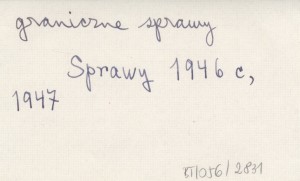 graniczne sprawy
Sprawy 1946 c,
1947
BT/056/2831